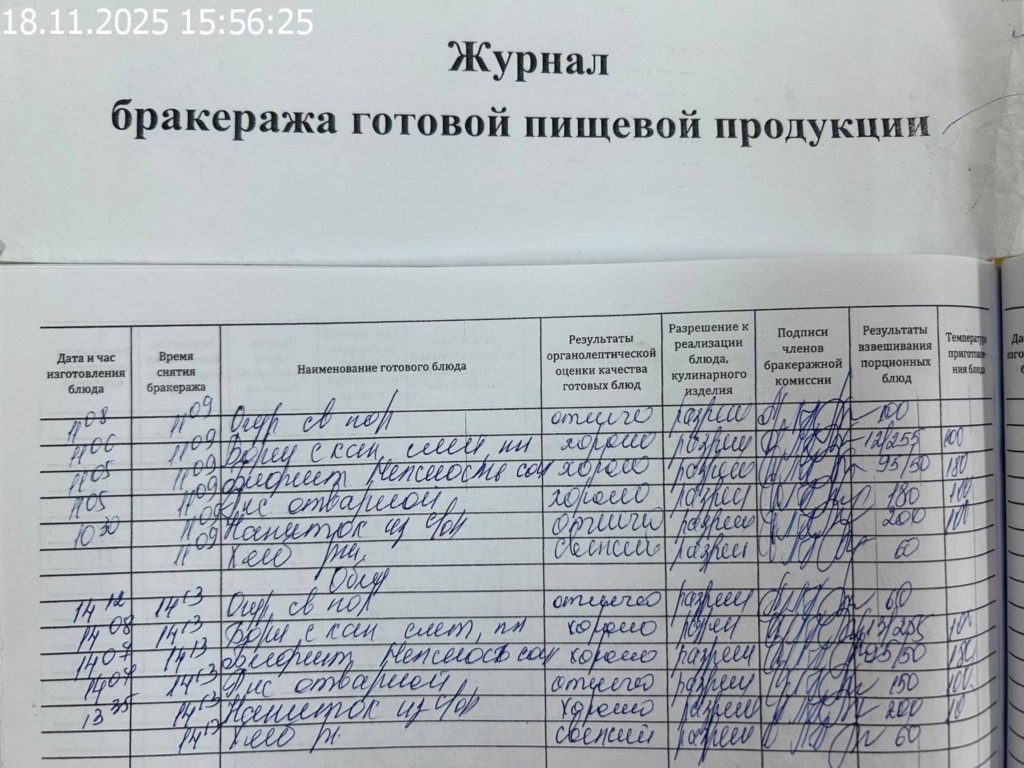 18.11.2025 15:56:25
Журнал
бракеража готовой пищевой продукции
Дата и час изготовления блюда
Время снятия бракеража
Наименование готового блюда
Результаты органолептической оценки качества готовых блюд
Разрешение к реализации блюда, кулинарного изделия
Подписи членов бракеражной комиссии
Результаты взвешивания порционных блюд
Температура приготовле-ния блюда
11 08 11 09 Огур св пор отлично разреш 100
11 06 11 09 Борщ с кап смет хорошо разреш 12/255 100
11 05 11 09 хорошо разреш 95/50 180
11 05 11 09 Рис отварной хорошо разреш 180 100
10 30 11 09 Напиток из отличн разреш 200 100
11 09 Хлеб рж. свежий разреш 60
14 12 14 13 Огур св пор отлично разреш 60
14 08 14 13 Борщ с кап смет, хорошо разреш 13/255
14 07 14 13 хорошо разреш 95/50 180
14 13 Рис отварной отлично разреш 150 100
13 35 14 13 Напиток из хорошо разреш 200
14 13 Хлеб рж свежий разреш 60